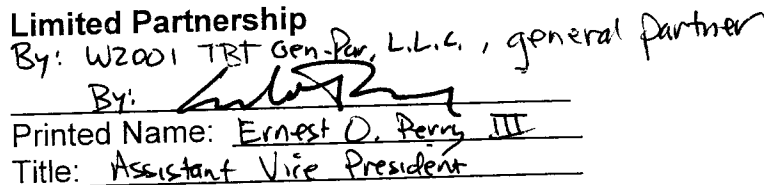 Limited Partnership
By: W2001 TBT Gen-Par, L.L.C., general partner
By:
Printed Name: Ernest O. Perry III
Title: Assistant Vice President